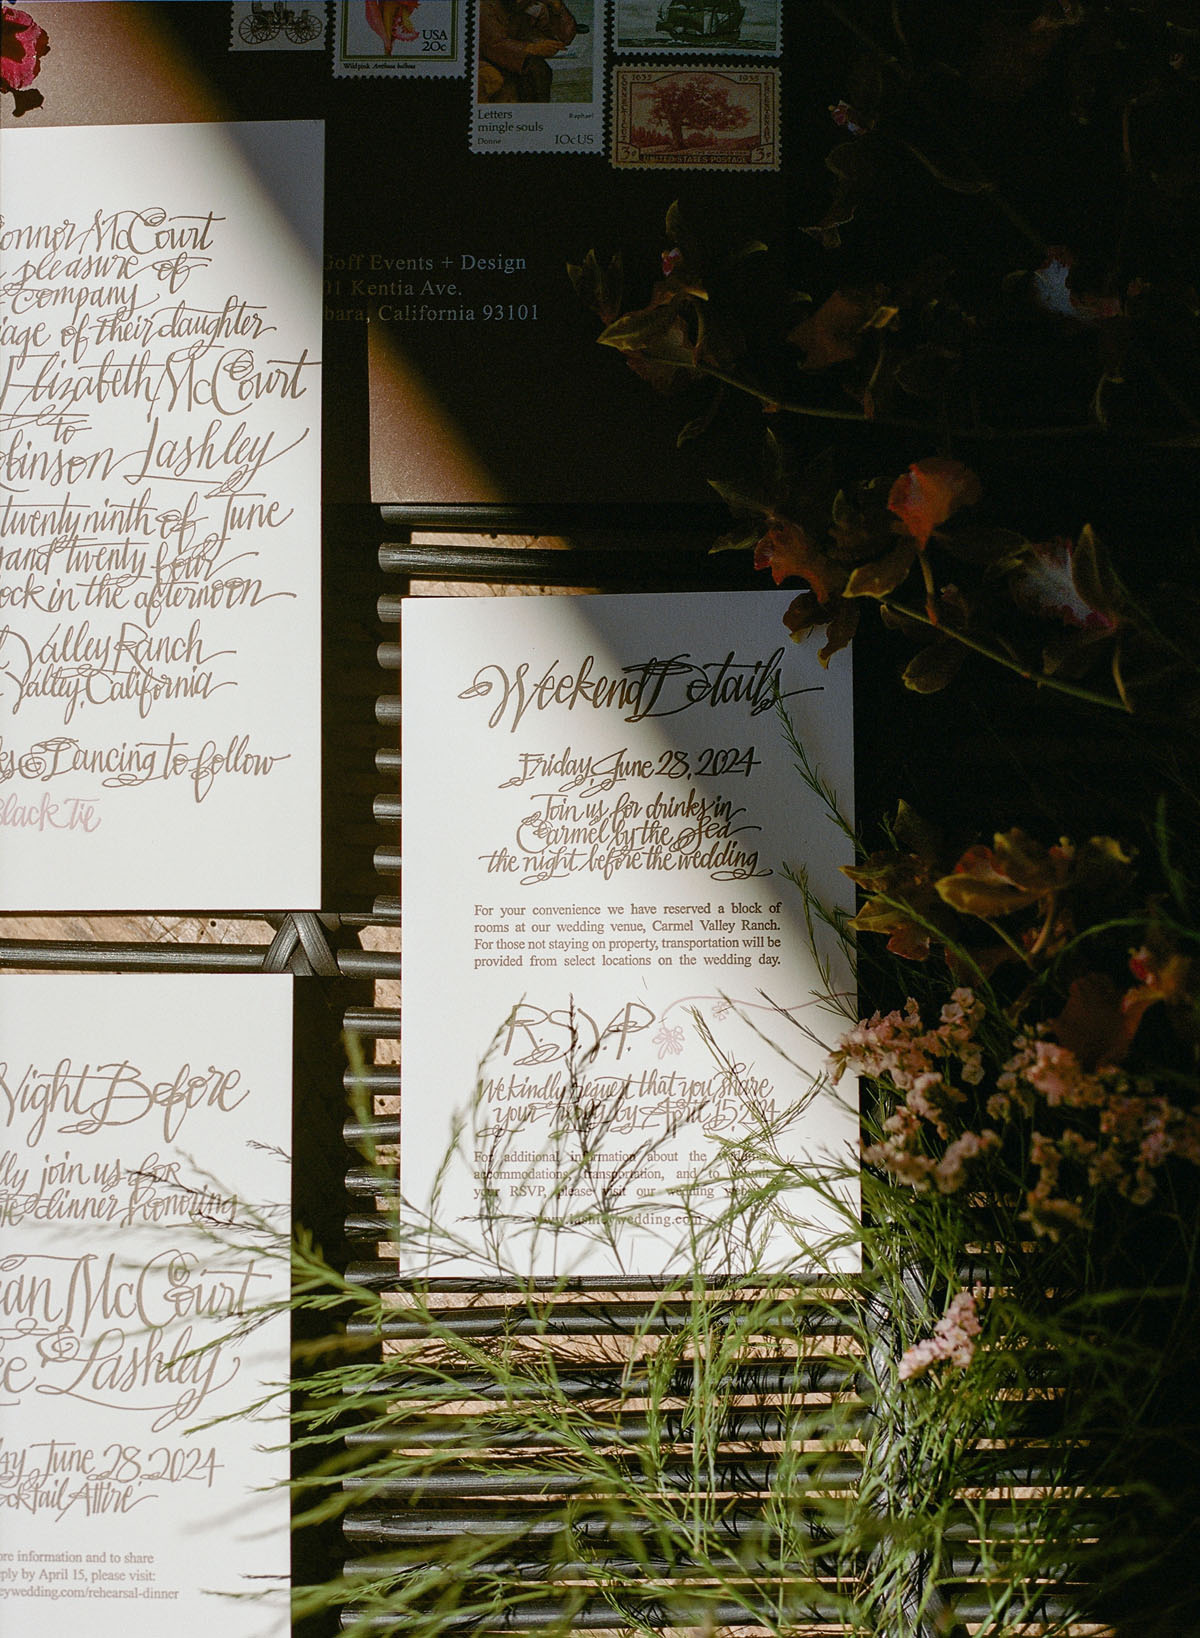 USA
20c
Wild pink Arethusa bulbosa
Letters
mingle souls
Donne
Raphael
10c US
1635 1935
3¢ 3¢
UNITED STATES POSTAGE
Goff Events + Design
01 Kentia Ave.
bara, California 93101
onnor McCourt
pleasure of
company
iage of their daughter
Elizabeth McCourt
to
obinson Lashley
twenty ninth of June
sand twenty four
ock in the afternoon
Valley Ranch
Valley, California
es & Dancing to follow
Black Tie
Weekend Details
Friday, June 28, 2024
Join us for drinks in
Carmel by the Sea
the night before the wedding
For your convenience we have reserved a block of
rooms at our wedding venue, Carmel Valley Ranch.
For those not staying on property, transportation will be
provided from select locations on the wedding day.
R.S.V.P.
We kindly request that you share
your reply by April 15, 2024
For additional information about the wedding,
accommodations, transportation, and to submit
your RSVP, please visit our wedding website
www.lashleywedding.com
Night Before
lly join us for
dinner honoring
an McCourt
&
Lashley
ay, June 28, 2024
ocktail Attire
ore information and to share
eply by April 15, please visit:
leywedding.com/rehearsal-dinner